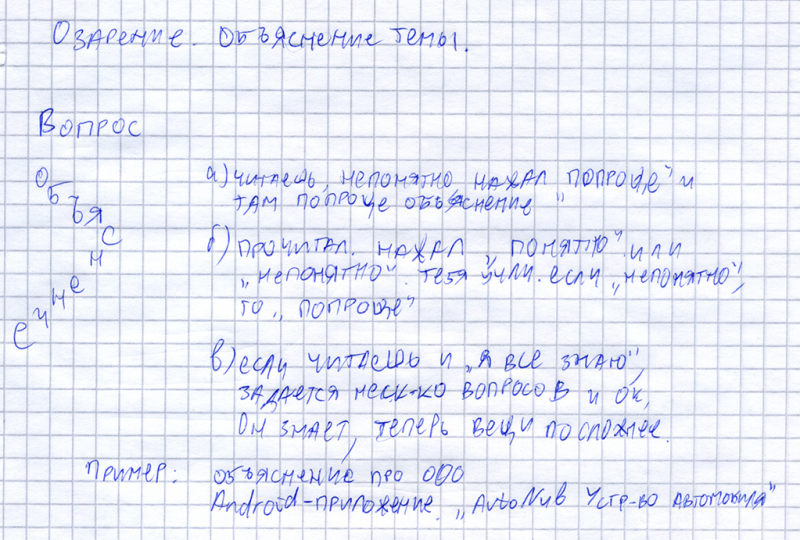 Озарение. Объяснение темы.
Вопрос
Объяснение
а) читаешь, непонятно, нажал „попроще" и
там попроще объяснение"
б) прочитал. нажал „понятно" или
„непонятно". тебя учли. если „непонятно",
то „попроще"
в) если читаешь и „я все знаю",
задается неск-ко вопросов и ок,
он знает, теперь вещи посложнее.
Пример: объяснение про ООО
Android-приложение „AvtoNub Устр-во автомобиля"